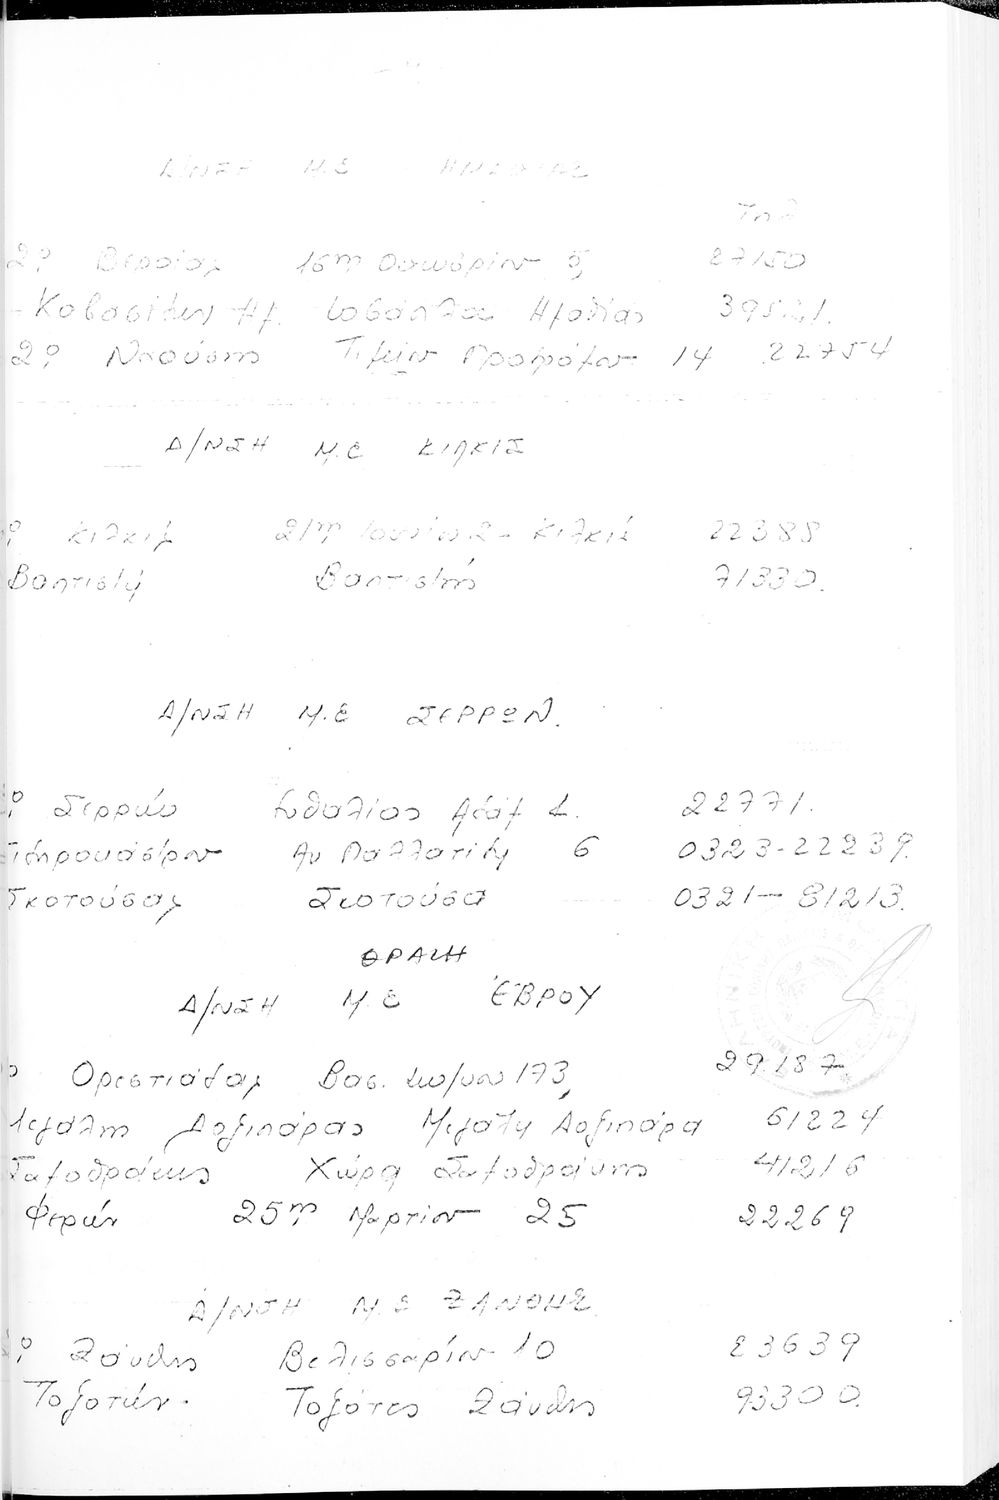 Δ/ΝΣΗ Μ.Ε ΗΜΑΘΙΑΣ
Τηλ
2ο Βεροίας 16ης Οκτωβρίου 27150
Καβασίλων Ημ. Ημαθίας
2ο Ναούσης Τιμίου Προδρόμου 14 22754
Δ/ΝΣΗ Μ.Ε ΚΙΛΚΙΣ
Κιλκίς 21ης Ιουνίου 2 - Κιλκίς 22388
Βαπτιστή Βαπτιστής 71330.
Δ/ΝΣΗ Μ.Ε ΣΕΡΡΩΝ.
Σερρών 22771.
Σιδηροκάστρου 6 0323-22239.
Σκοτούσας Σκοτούσα 0321-81213.
ΘΡΑΚΗ
Δ/ΝΣΗ Μ.Ε ΕΒΡΟΥ
Ορεστιάδας Βασ. Κων/νου 173, 29187
Μεγάλης Δοξιπάρας Μεγάλη Δοξιπάρα 61224
Σαμοθράκης Χώρα Σαμοθράκης 41216
Φερών 25ης Μαρτίου 25 22269
Δ/ΝΣΗ Μ.Ε ΞΑΝΘΗΣ
Ξάνθης Βελισσαρίου 10 23639
Τοξοτών. Τοξότες Ξάνθης 93300.